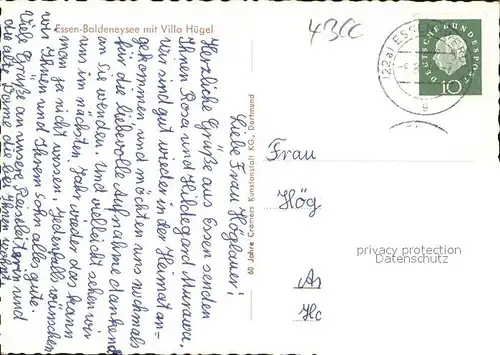 Essen-Baldeneysee mit Villa Hügel
43CC
(22a) ESS
g
DEUTSCHE BUNDESPOST
10
60 Jahre Cramers Kunstanstalt KG., Dortmund
Liebe Frau Höglauer!
Herzliche Grüße aus Essen senden
Ihnen Rosa und Hildegard Murawa.
Wir sind gut wieder in der Heimat an=
gekommen und möchten uns nochmals
für die liebevolle Aufnahme dankend
an Sie wenden. Und vielleicht sehen wir
uns im nächsten Jahr wieder das kann
man ja nicht wissen. Jedenfalls wünschen
wir Ihnen und Ihrem Sohn alles gute.
Viele Grüße an unsere Reiseleiterin und
die alte Dame die bei Ihnen wohnt
Frau
Hög
privacy protection
Datenschutz